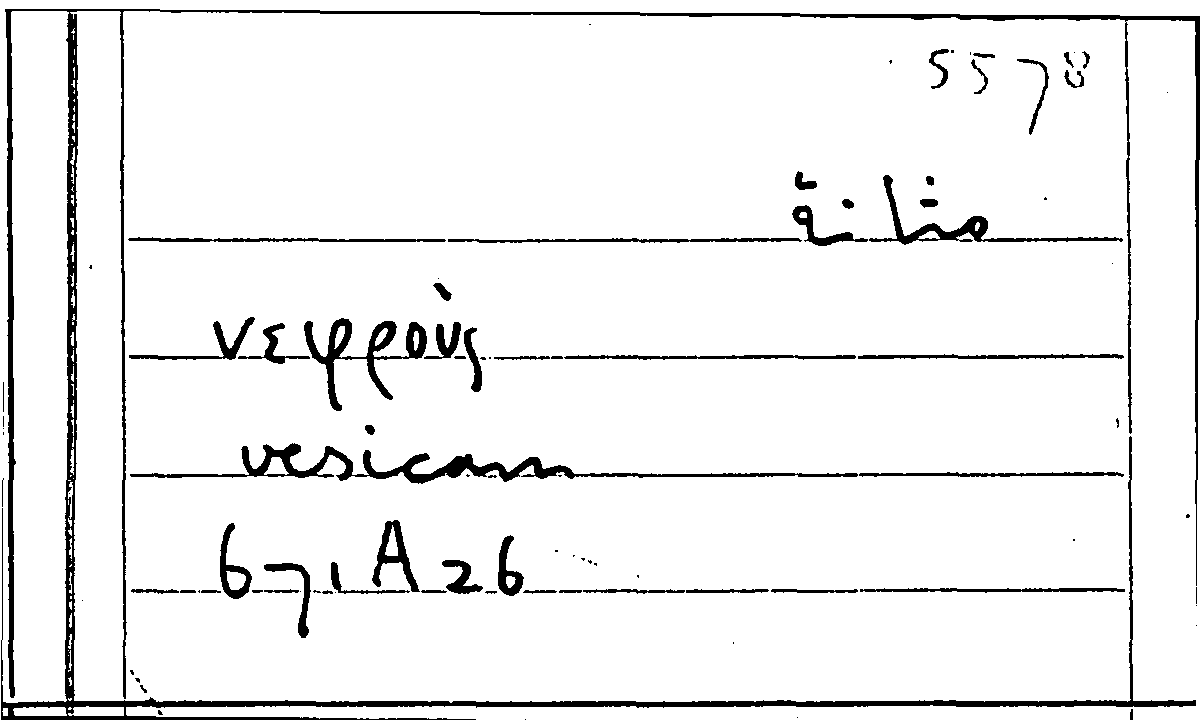 5578
مثانة
νεφροὺς
vesicam
671A26